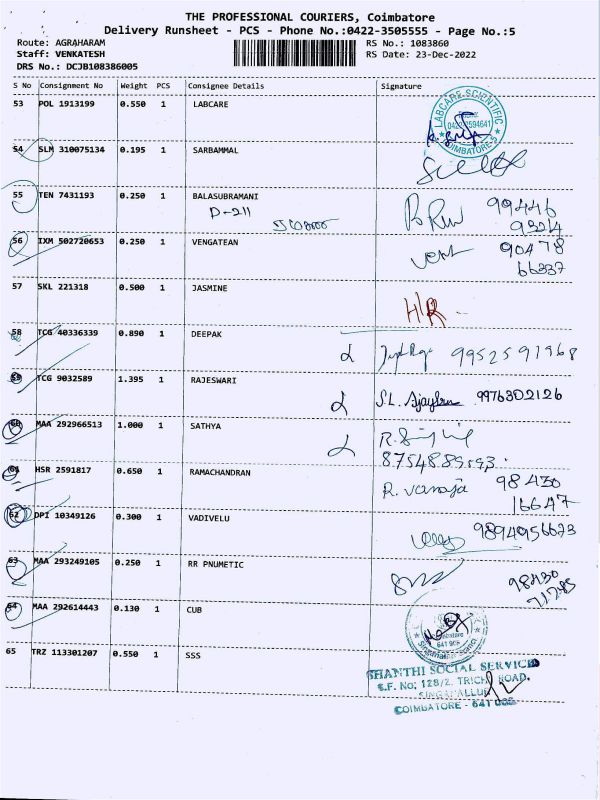 THE PROFESSIONAL COURIERS, Coimbatore
Delivery Runsheet - PCS - Phone No.:0422-3505555 - Page No.:5
Route: AGRAHARAM RS No.: 1083860
Staff: VENKATESH RS Date: 23-Dec-2022
DRS No.: DCJB108386005
S No Consignment No Weight PCS Consignee Details Signature
53 POL 1913199 0.550 1 LABCARE
LABCARE SCIENTIFIC
COIMBATORE-5
54 SLM 310075134 0.195 1 SARBAMMAL
55 TEN 7431193 0.250 1 BALASUBRAMANI
D-211
99446
9324
56 IXM 502720653 0.250 1 VENGATEAN
90478
66337
57 SKL 221318 0.500 1 JASMINE
H/R
58 TCG 40336339 0.890 1 DEEPAK
9952591968
59 TCG 9032589 1.395 1 RAJESWARI
9976302126
60 MAA 292966513 1.000 1 SATHYA
8754889593
61 HSR 2591817 0.650 1 RAMACHANDRAN
R. vanaja 98430
16647
62 DPI 10349126 0.300 1 VADIVELU
9894956623
63 MAA 293249105 0.250 1 RR PNUMETIC
98430
71785
64 MAA 292614443 0.130 1 CUB
65 TRZ 113301207 0.550 1 SSS
SHANTHI SOCIAL SERVICES
S.F. No; 128/2, TRICHY ROAD,
SINGANALLUR
COIMBATORE - 641 005